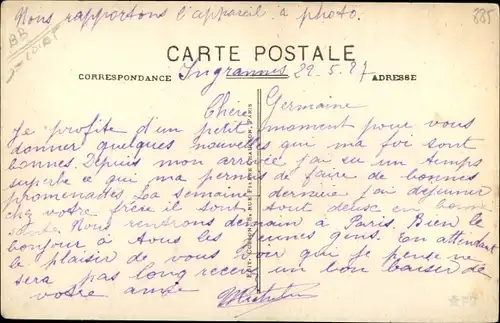 Nous rapportons l'appareil à photo.
885
BR
LOIRET
CARTE POSTALE
CORRESPONDANCE Ingrannes 29.5.27 ADRESSE
Chère Germaine
Je profite d'un petit moment pour vous
donner quelques nouvelles qui ma foi sont
bonnes. Depuis mon arrivée j'ai eu un temps
superbe ce qui ma permis de faire de bonnes
promenades. La semaine dernière j'ai déjeuner
chez votre frère il sont tout deux en bonne
santé. Nous rentrons demain à Paris. Bien le
bonjour à tous les jeunes gens. En attendant
le plaisir de vous voir qui je pense ne
sera pas long recevez un bon baiser de
votre amie